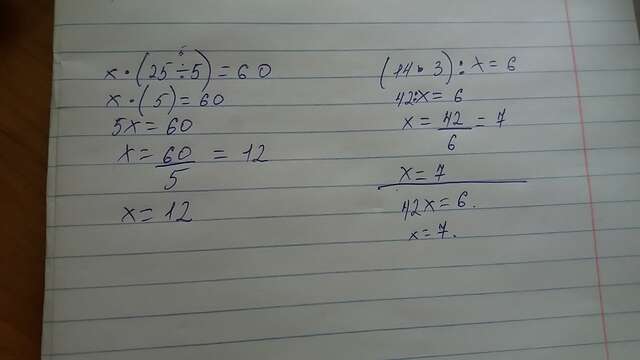 x · (25 ÷ 5) = 60
x · (5) = 60
5x = 60
x = 60/5 = 12
x = 12
(14 · 3) : x = 6
42 : x = 6
x = 42/6 = 7
x = 7
42x = 6.
x = 7.